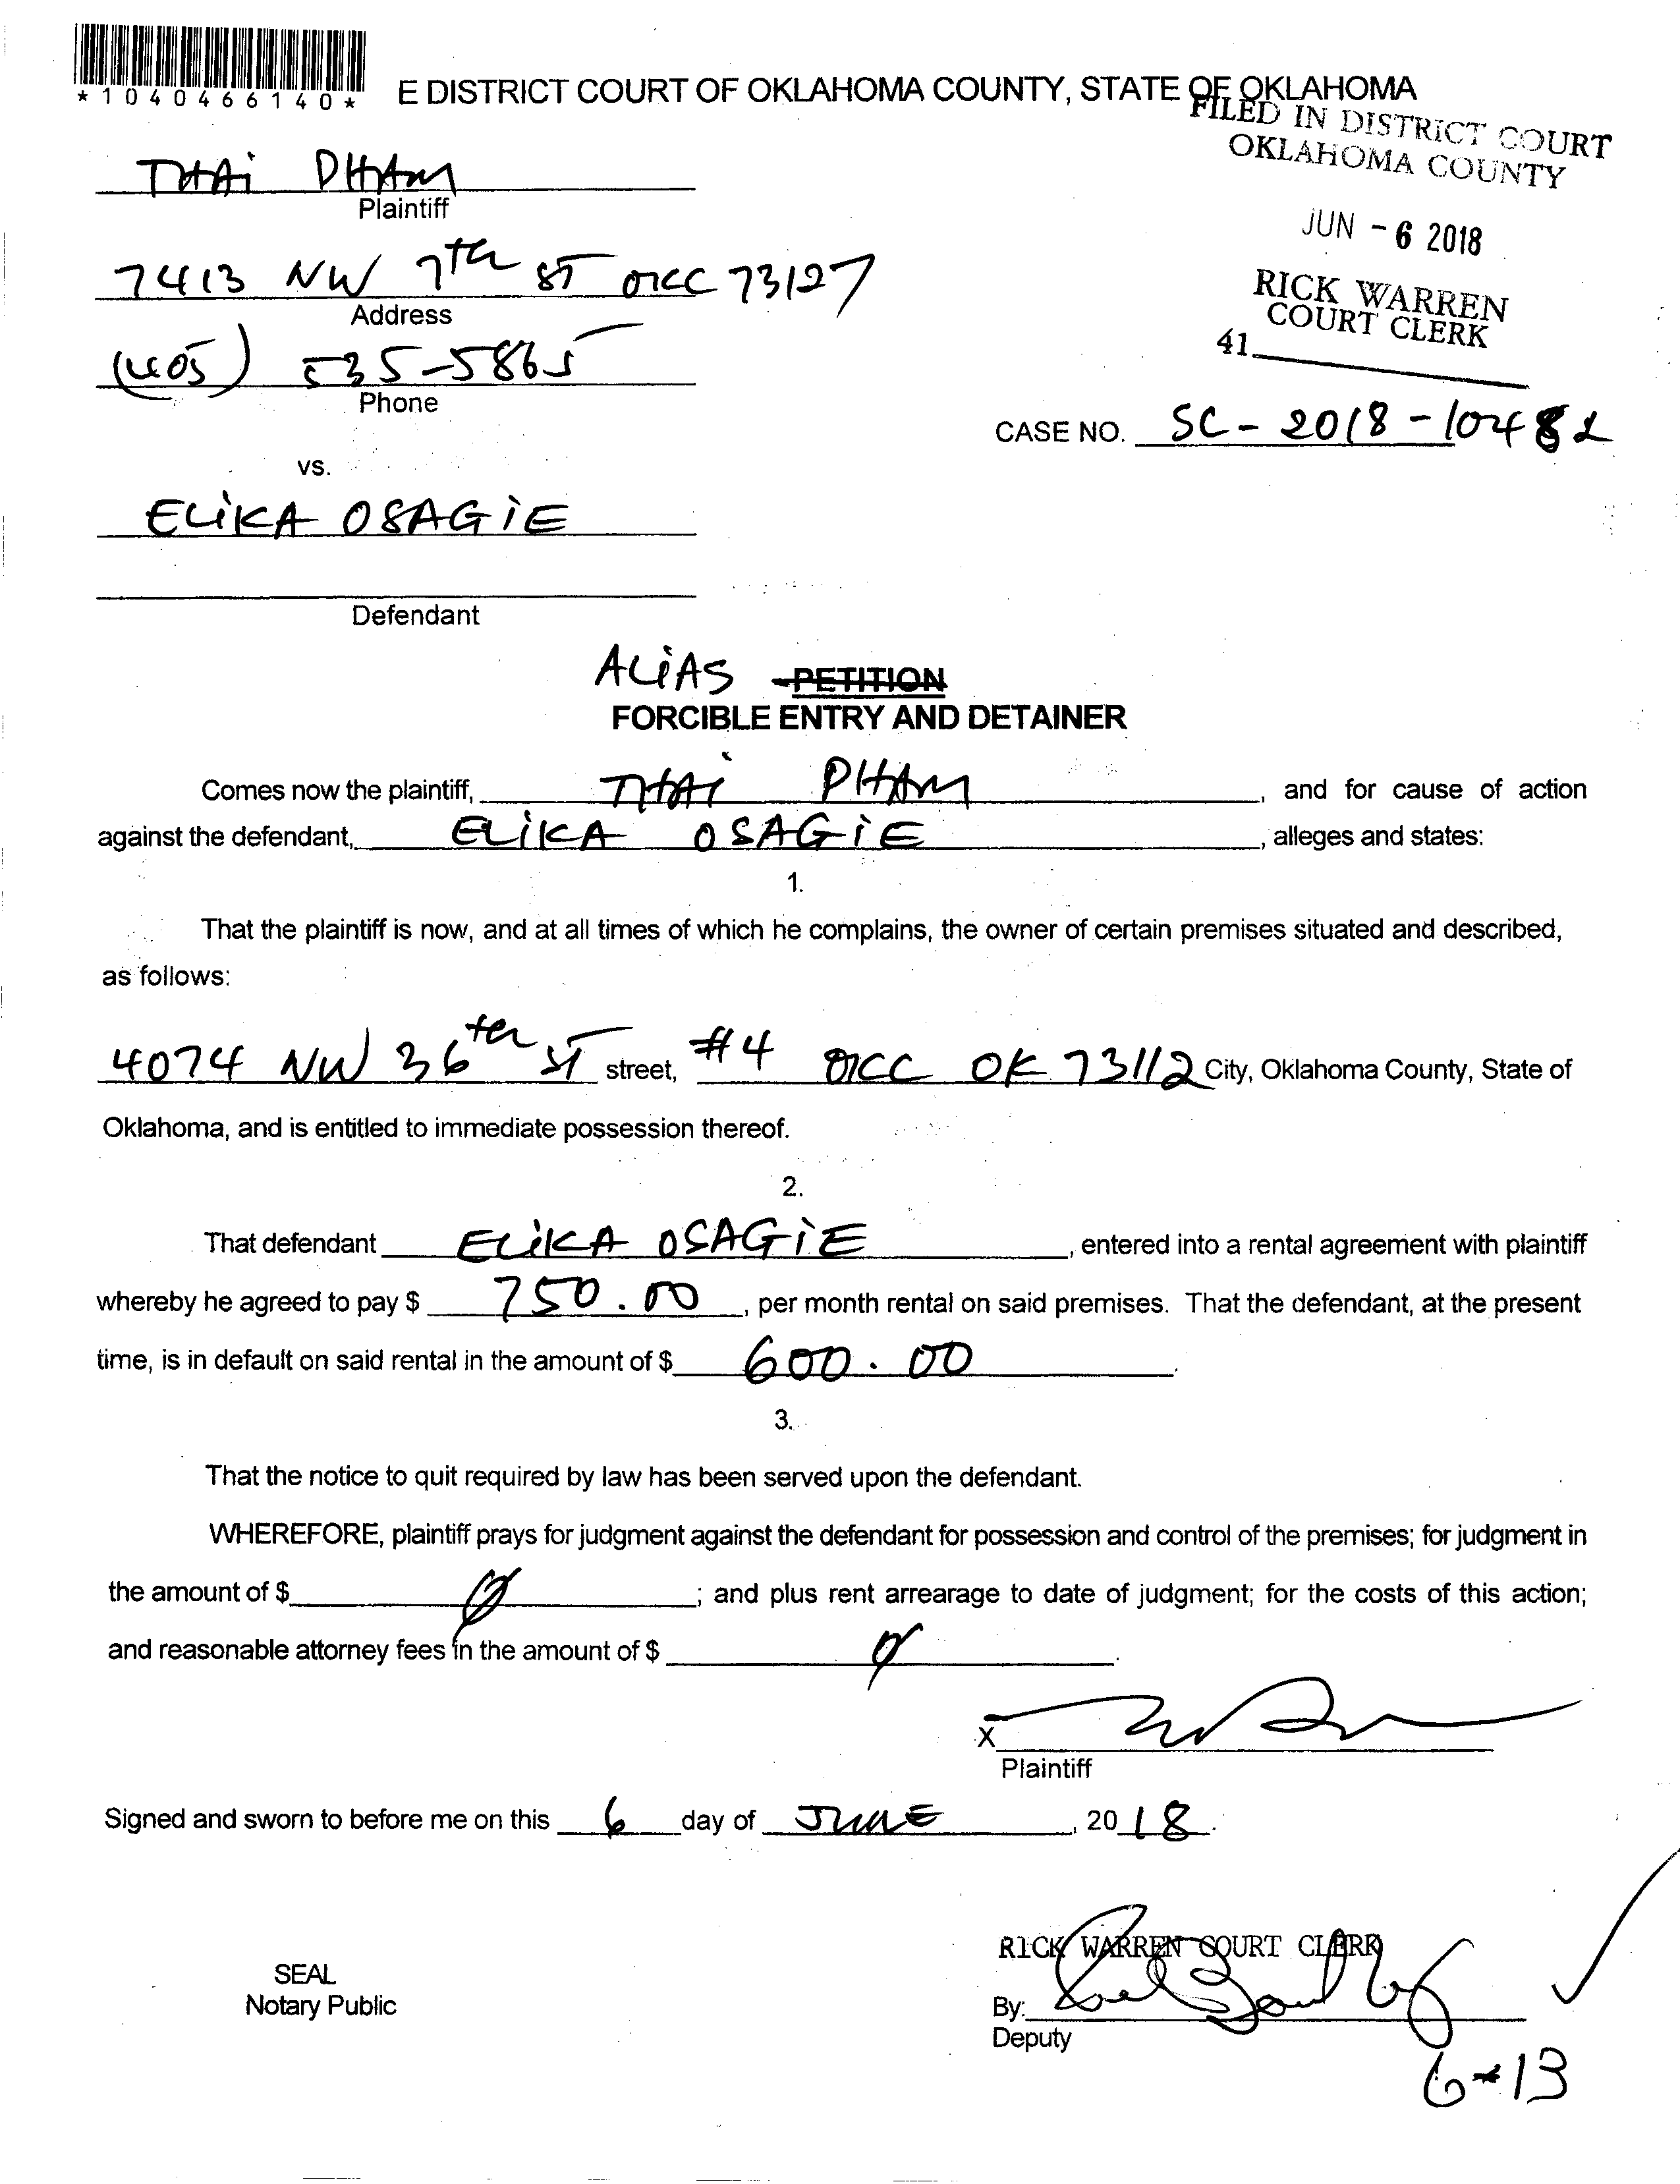 *1040466140*
E DISTRICT COURT OF OKLAHOMA COUNTY, STATE OF OKLAHOMA
FILED IN DISTRICT COURT
OKLAHOMA COUNTY
JUN - 6 2018
RICK WARREN
COURT CLERK
41
THAI PHAM
Plaintiff
7413 NW 7th ST OKC 73127
Address
(405) 535-5865
Phone
CASE NO. SC-2018-10482
vs.
ELIKA OSAGIE
Defendant
ALIAS PETITION
FORCIBLE ENTRY AND DETAINER
Comes now the plaintiff, THAI PHAM, and for cause of action
against the defendant, ELIKA OSAGIE, alleges and states:
1.
That the plaintiff is now, and at all times of which he complains, the owner of certain premises situated and described,
as follows:
4074 NW 36th ST street, #4 OKC OK 73112 City, Oklahoma County, State of
Oklahoma, and is entitled to immediate possession thereof.
2.
That defendant ELIKA OSAGIE, entered into a rental agreement with plaintiff
whereby he agreed to pay $ 750.00, per month rental on said premises. That the defendant, at the present
time, is in default on said rental in the amount of $ 600.00.
3.
That the notice to quit required by law has been served upon the defendant.
WHEREFORE, plaintiff prays for judgment against the defendant for possession and control of the premises; for judgment in
the amount of $ 0; and plus rent arrearage to date of judgment; for the costs of this action;
and reasonable attorney fees in the amount of $ 0.
X
Plaintiff
Signed and sworn to before me on this 6 day of JUNE, 2018.
RICK WARREN COURT CLERK
SEAL
Notary Public
By:
Deputy
6-13